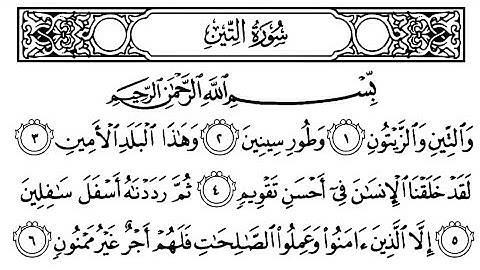 سُورَةُ التِّينِ
بِسْمِ اللَّهِ الرَّحْمَٰنِ الرَّحِيمِ
وَالتِّينِ وَالزَّيْتُونِ ١ وَطُورِ سِينِينَ ٢ وَهَٰذَا الْبَلَدِ الْأَمِينِ ٣
لَقَدْ خَلَقْنَا الْإِنسَانَ فِي أَحْسَنِ تَقْوِيمٍ ٤ ثُمَّ رَدَدْنَاهُ أَسْفَلَ سَافِلِينَ
٥ إِلَّا الَّذِينَ ءَامَنُوا وَعَمِلُوا الصَّالِحَاتِ فَلَهُمْ أَجْرٌ غَيْرُ مَمْنُونٍ ٦